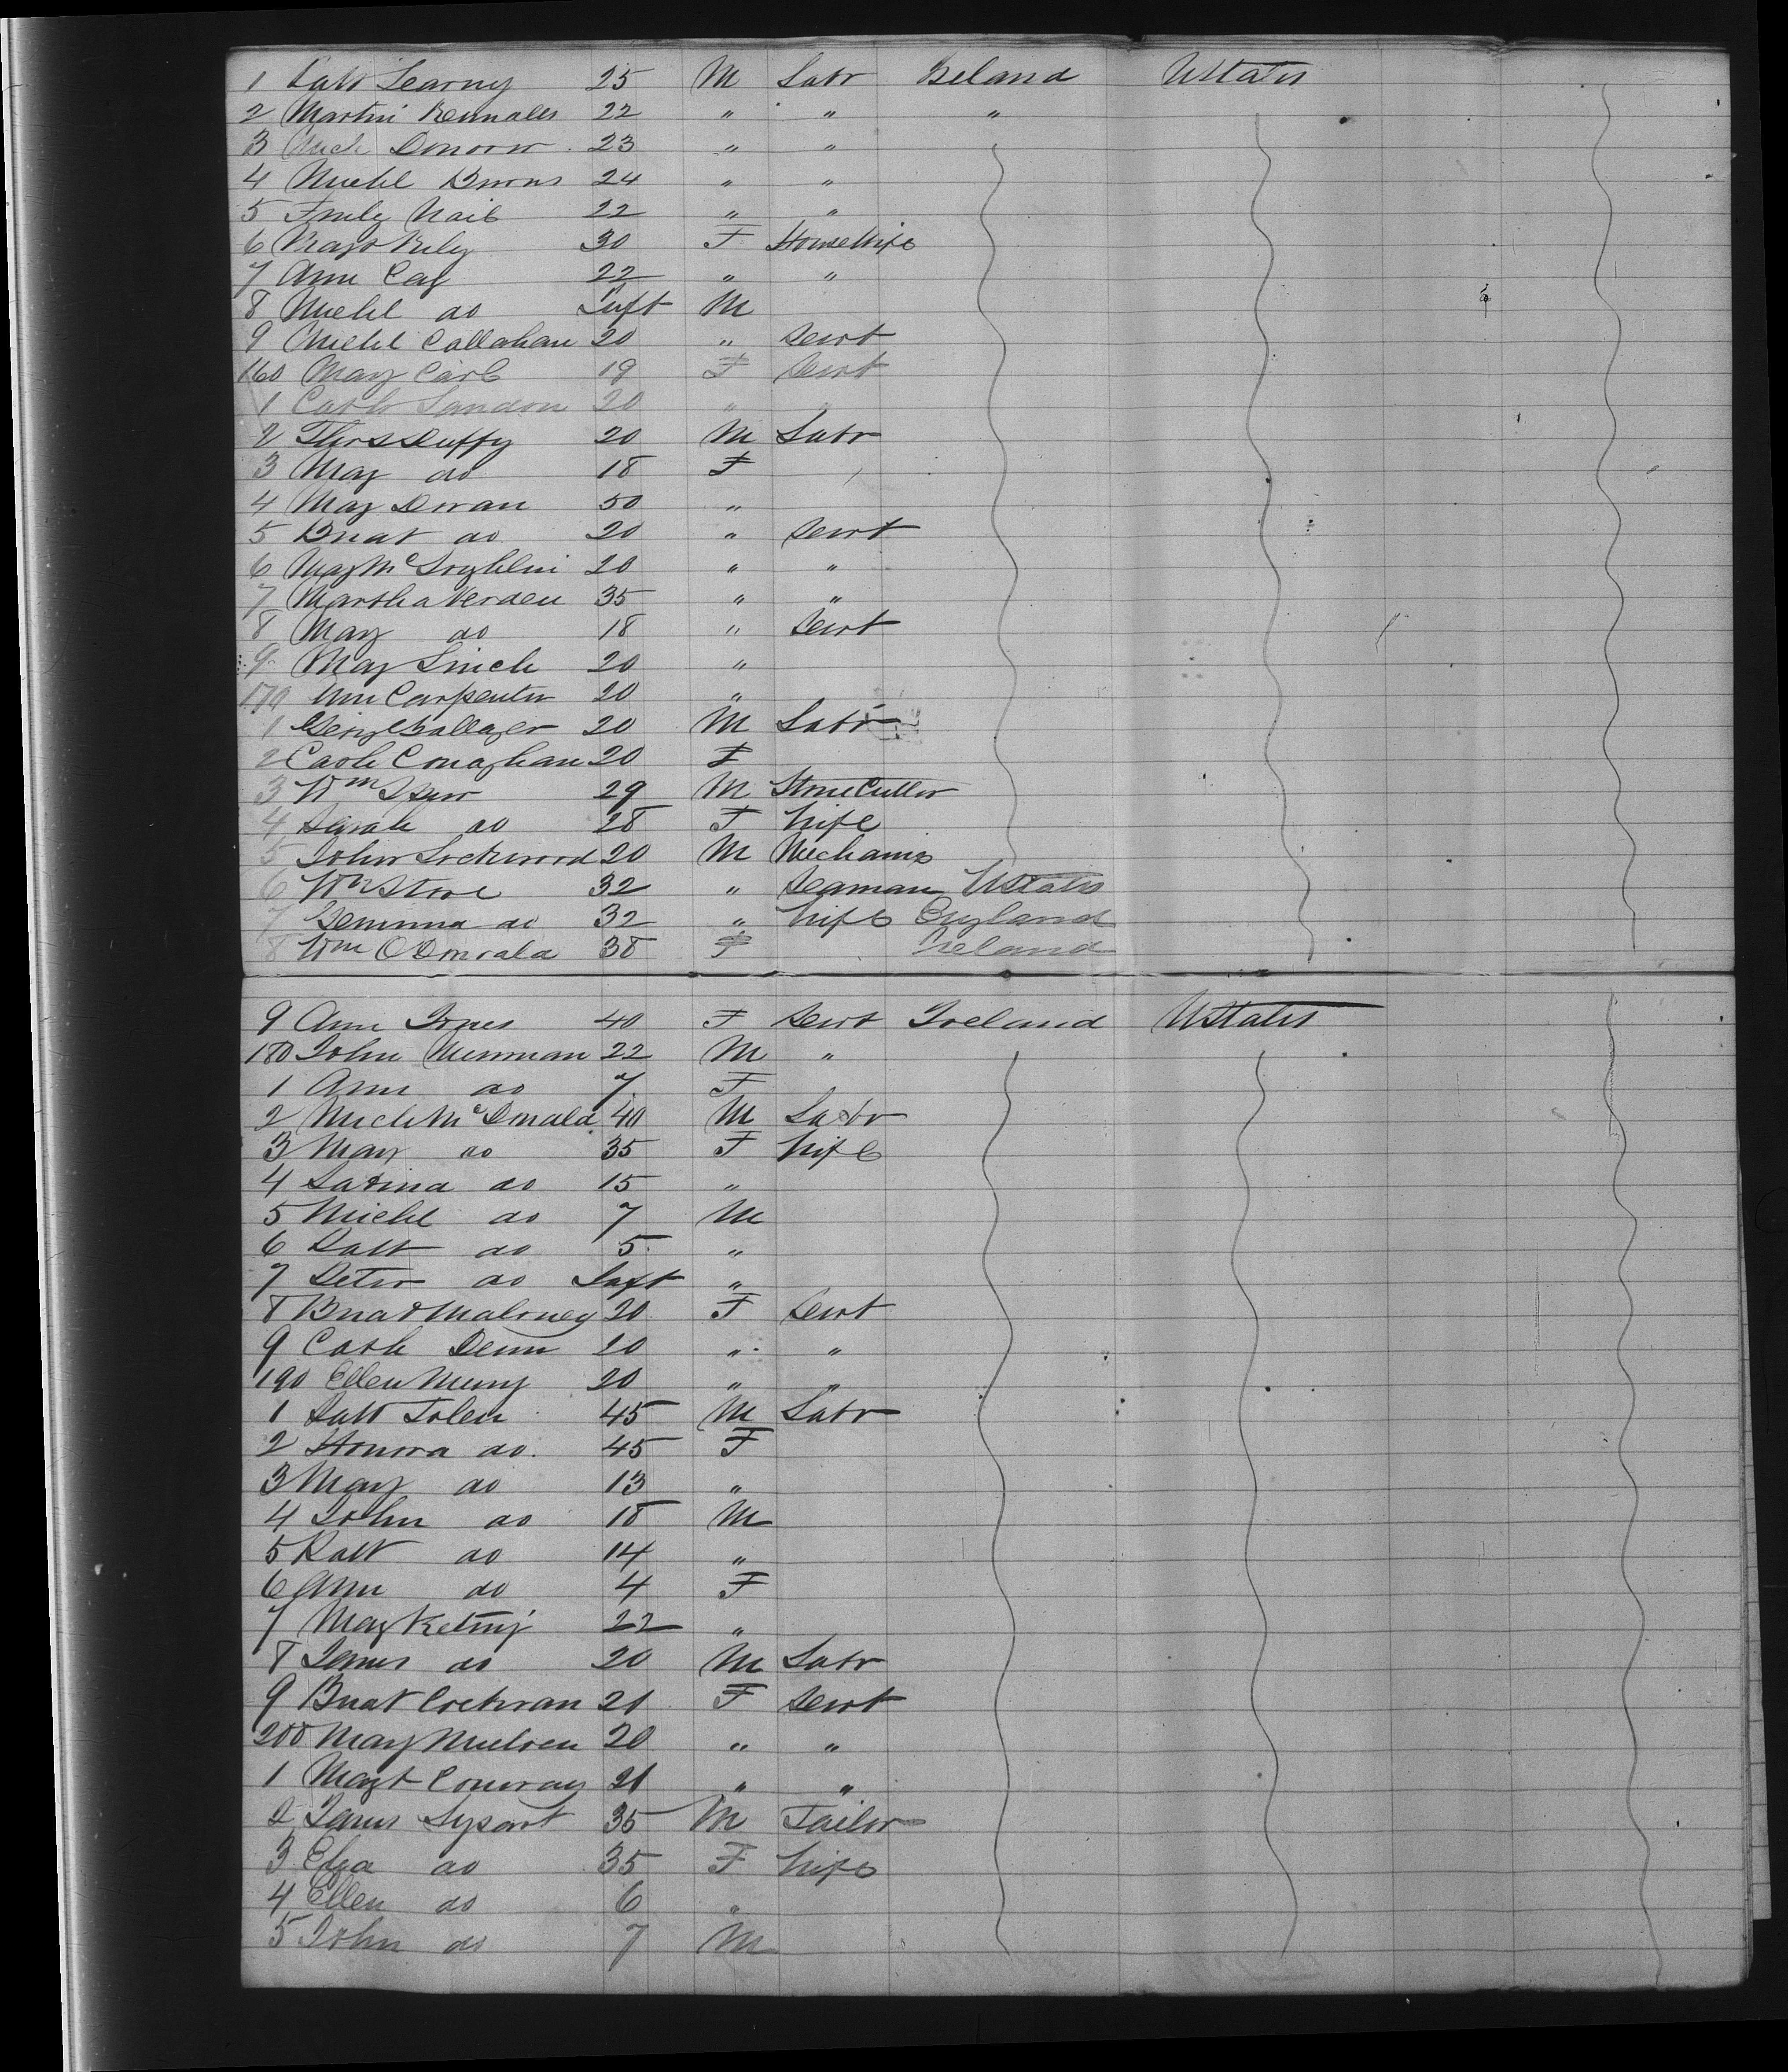 1 Patk Learny 25 M Labr Ireland UStates
2 Martin 22 " " "
3 Mich Donoorr 23 " "
4 Michl Burns 24 " "
5 22 " "
6 Margt Rily 30 F Housewife
7 Ann Cay 22 " "
8 Michl do Inft M
9 Michl Callahan 20 " Servt
160 May Carl 19 F Servt
1 Cath Landon 20 " "
2 Thos Duffy 20 M Labr
3 May do 18 F
4 May Doran 50 "
5 Bridt do 20 " Servt
6 May McLoghlin 20 " "
7 Martha Verden 35 " "
8 May do 18 " Servt
9 May Linch 20 "
170 Ann Carpenter 20 "
1 Geing Gallager 20 M Labr
2 Cath Conaghan 20 F
3 Wm 29 M Stone Cutter
4 Sarah do 28 F Wife
5 John Lockwood 20 M Mechanic
6 Wm Stone 32 " Seaman UStates
7 Gemima do 32 " Wife England
8 Wm ODonald 38 F Ireland
9 Ann Jones 40 F Servt Ireland UStates
180 John Newman 22 M "
1 Ann do 7 F
2 Mich McDonald 40 M Labr
3 May do 35 F Wife
4 Sabina do 15 "
5 Michl do 7 M
6 Patt do 5 "
7 Peter do Inft "
8 Bridt Maloney 20 F Servt
9 Cath Dunn 20 " "
190 Ellen Murry 20 " "
1 Patt Tolen 45 M Labr
2 Honora do 45 F
3 May do 13 "
4 John do 18 M
5 Patt do 14 "
6 Ann do 4 F
7 May Keting 22 "
8 James do 20 M Labr
9 Bridt Cochran 21 F Servt
200 May Mulven 20 " "
1 Magt Conway 21 " "
2 James Lysart 35 M Tailor
3 Eliza do 35 F Wife
4 Ellen do 6 "
5 John do 7 M